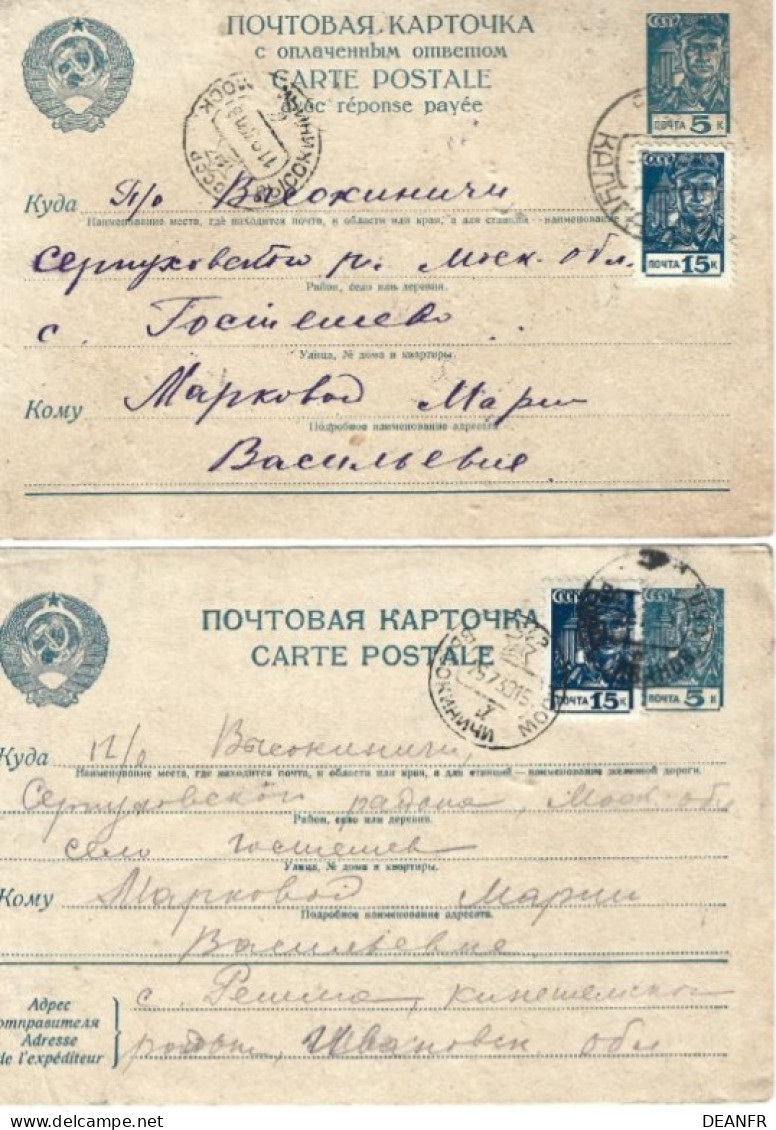 ПОЧТОВАЯ КАРТОЧКА
с оплаченным ответом
CARTE POSTALE
avec réponse payée
СССР
ПОЧТА 5 К
СССР
ПОЧТА 15 К
Куда П/о Высокиничи
Наименование места, где находится почта, и области или края, а для станций - наименование
Серпуховского р. Моск. обл.
Район, село или деревня.
с. Гостешево
Улица, № дома и квартиры.
Кому Марковой Марии
Подробное наименование адресата
Васильевне
ПОЧТОВАЯ КАРТОЧКА
CARTE POSTALE
СССР
ПОЧТА 15 К
ПОЧТА 5 К
Куда П/о Высокиничи,
Наименование места, где находится почта, и области или края, а для станций - наименование железной дороги.
Серпуховской района, Моск. обл,
Район, село или деревня.
село Гостешев
Улица, № дома и квартиры.
Кому Марковой Марии
Подробное наименование адресата.
Васильевне
Адрес отправителя
Adresse de l'expéditeur
с. Решма, кинешемског
район, Ивановск. обл
DEANFR